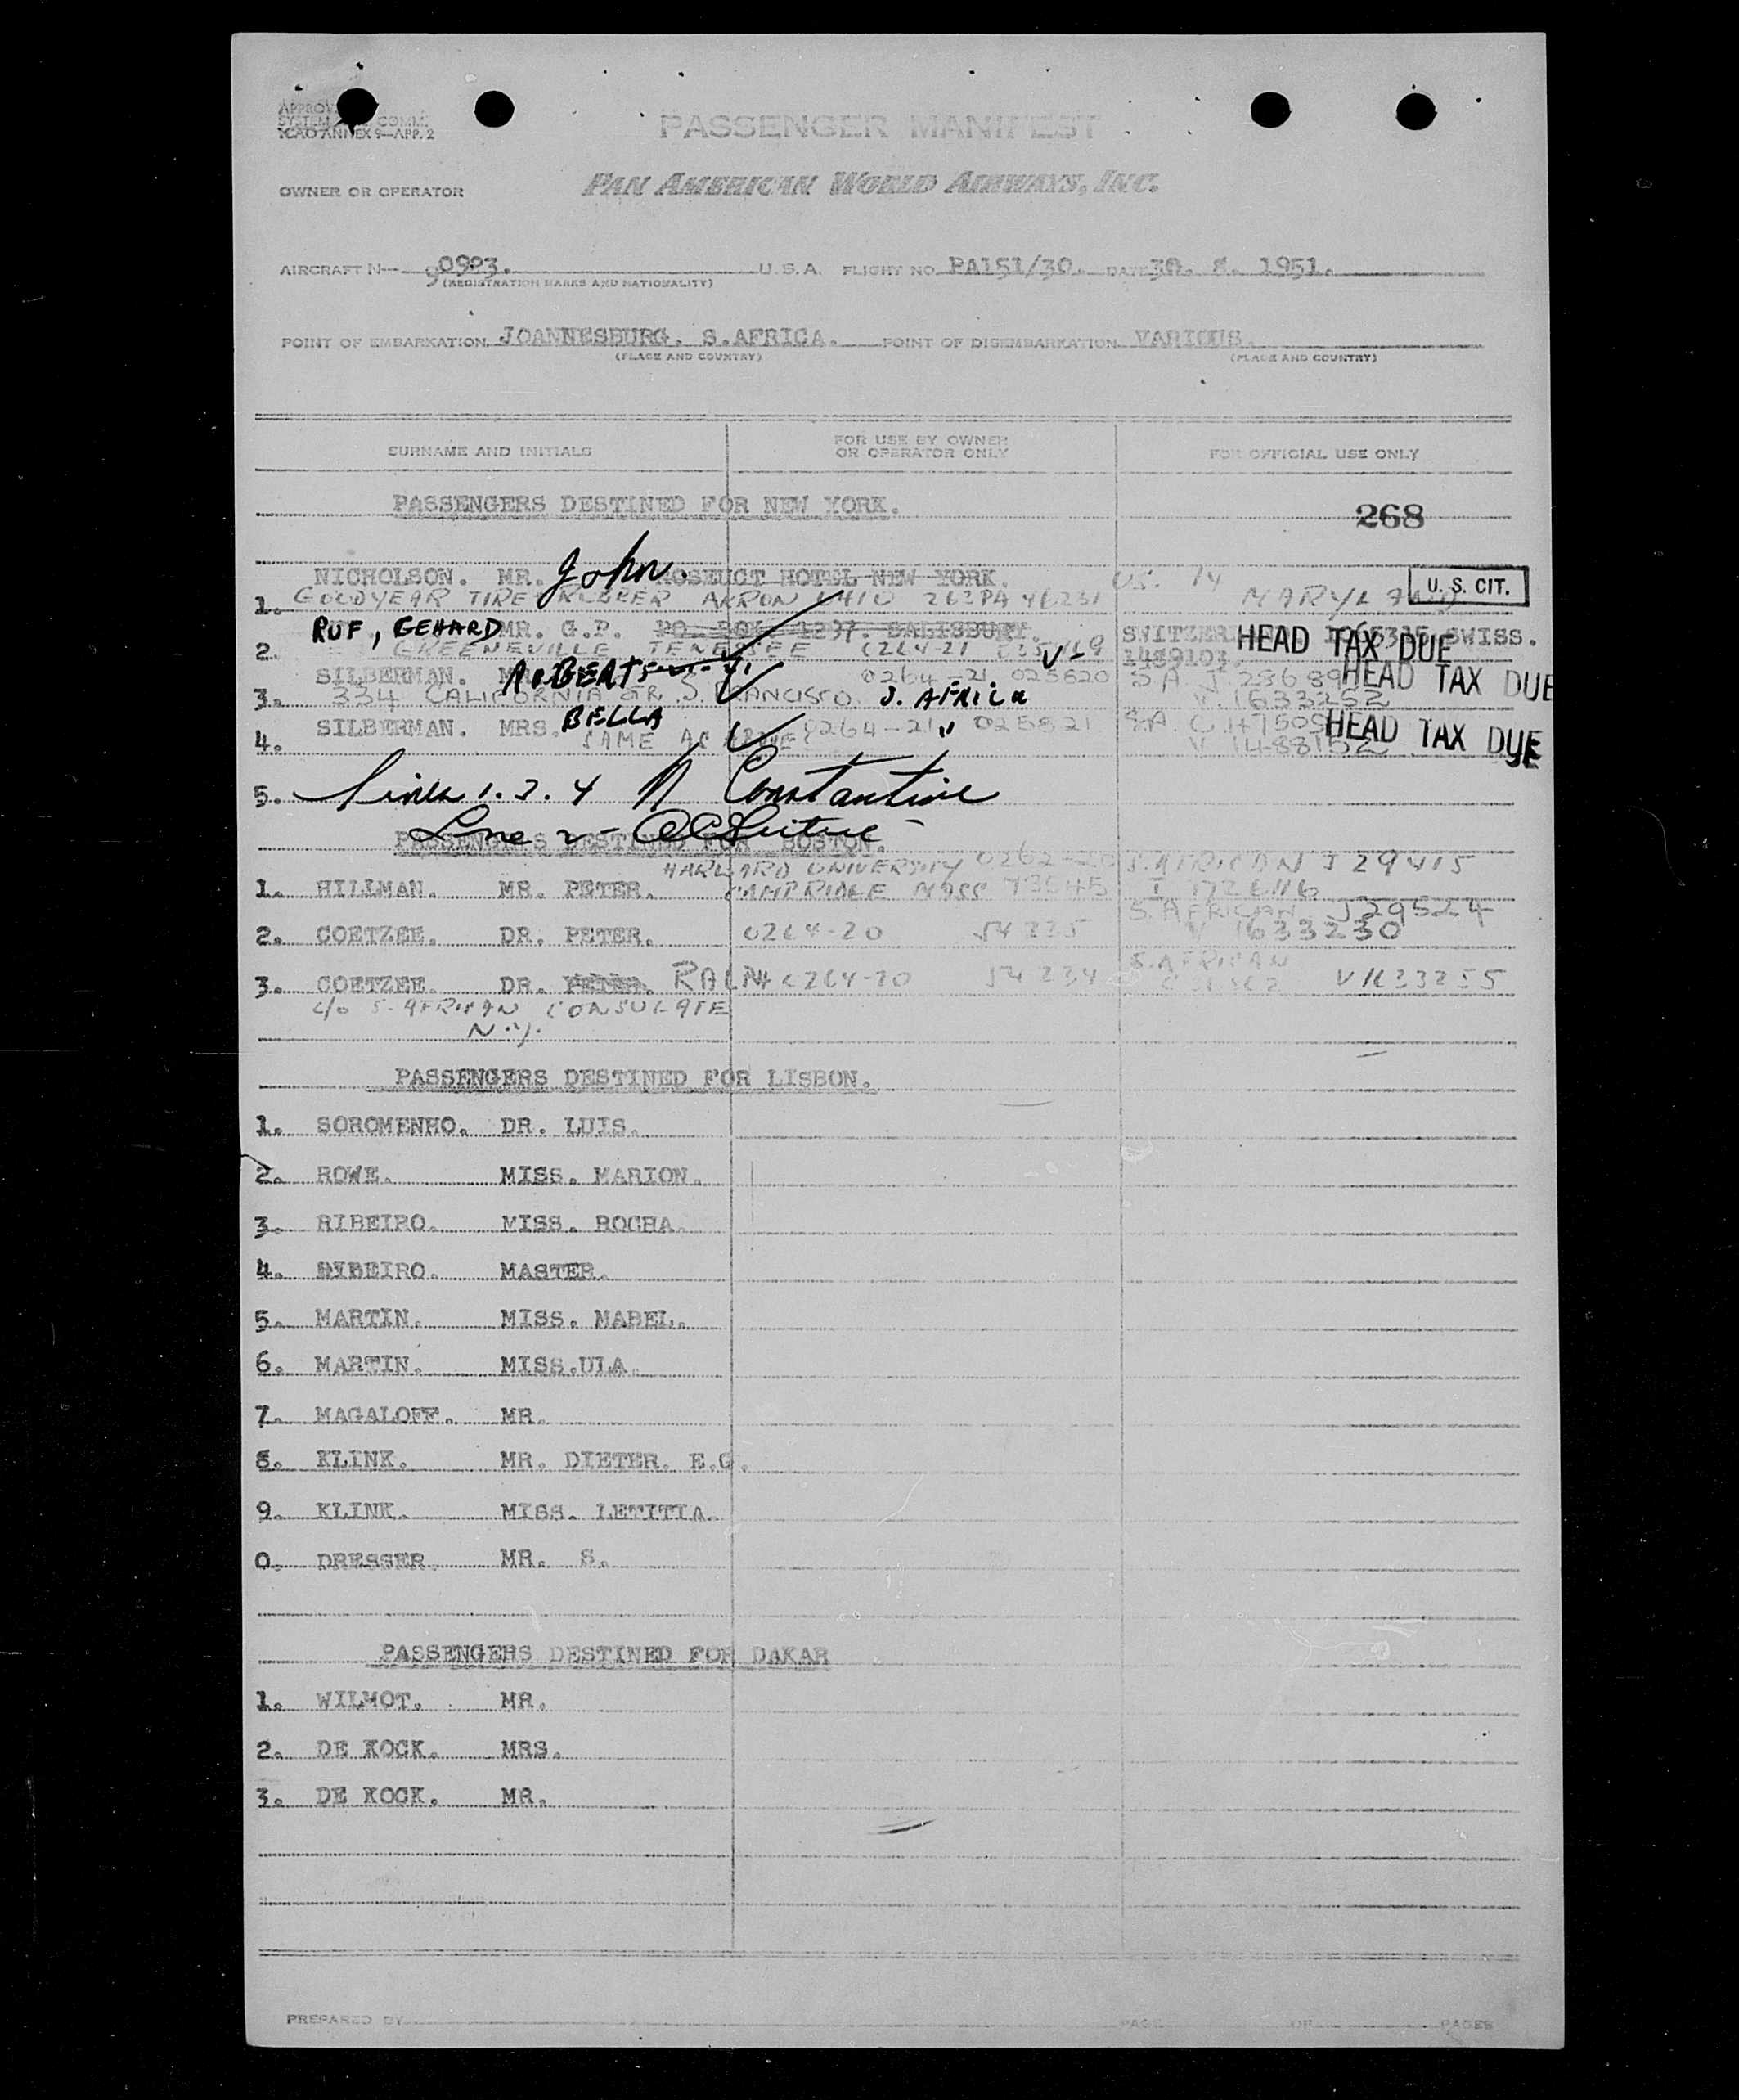 ICAO ANNEX 9—APP. 2
PASSENGER MANIFEST
OWNER OR OPERATOR PAN AMERICAN WORLD AIRWAYS, INC.
AIRCRAFT N— 90903. U.S.A. FLIGHT NO. PA151/30. DATE 30. 8. 1951.
(REGISTRATION MARKS AND NATIONALITY)
POINT OF EMBARKATION JOANNESBURG. S.AFRICA. POINT OF DISEMBARKATION VARIOUS.
(PLACE AND COUNTRY) (PLACE AND COUNTRY)
SURNAME AND INITIALS FOR USE BY OWNER OR OPERATOR ONLY FOR OFFICIAL USE ONLY
PASSENGERS DESTINED FOR NEW YORK.
268
NICHOLSON. MR. John. HOTEL NEW YORK. US. 14 U. S. CIT.
1. GOODYEAR TIRE + RUBBER AKRON OHIO 263PA 46231 MARYLAND
RUF, GEHARD MR. G.P. PO. BOX. 1297. SALISBURY. SWISS. HEAD TAX DUE
2. GREENEVILLE TENESSEE 0264-21 1489103.
SILBERMAN. MR. ROBERT 0264-21 025820 S.A. J 28689 HEAD TAX DUE
3. 334 CALIFORNIA STR S. FRANCISCO. S. AFRICA V. 1633252
SILBERMAN. MRS. BELLA 0264-21 025821 S.A. HEAD TAX DUE
4. SAME AS ABOVE V. 1488152
5. Lines 1. 3. 4 N Constantine
Line 2 -
PASSENGERS DESTINED FOR BOSTON.
HARVARD UNIVERSITY 0262-20 S. AFRICAN J 29415
1. HILLMAN. MR. PETER. CAMBRIDGE MASS 73545 I 1726116
S. AFRICAN J29524
2. COETZEE. DR. PETER. 0264-20 54235 V 1633230
S. AFRICAN
3. COETZEE. DR. PETER. RALPH 0264-20 54234 V1633255
c/o S. AFRICAN CONSULATE
N.Y.
PASSENGERS DESTINED FOR LISBON.
1. SOROMENHO. DR. LUIS.
2. ROWE. MISS. MARION.
3. RIBEIRO. MISS. ROCHA.
4. RIBEIRO. MASTER.
5. MARTIN. MISS. MABEL.
6. MARTIN. MISS.ULA.
7. MAGALOFF. MR.
8. KLINK. MR. DIETER. E.G.
9. KLINK. MISS. LETITIA.
0. DRESSER MR. S.
PASSENGERS DESTINED FOR DAKAR
1. WILMOT. MR.
2. DE KOCK. MRS.
3. DE KOCK. MR.
PREPARED BY PAGE OF PAGES